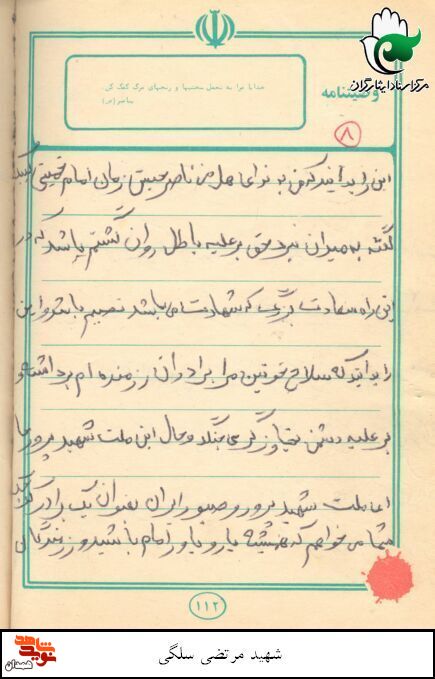 مرکز اسناد ایثارگران
وصیتنامه
خدایا مرا به تحمل سختیها و رنجهای مرگ کمک کن.
پیامبر (ص)
۸
این را بدانید که من به نوای هل من ناصر حسین زمان امام خمینی لبیک
گفته به میدان نبرد حق بر علیه باطل روان گشتم باشد که در
این راه سعادت بزرگ که شهادت می باشد نصیبم باشد و این
را بدانید که سلاح خونین مرا برادران رزمنده ام برداشته و
بر علیه دشمن تجاوزگر می جنگد و حال این ملت شهید پرور
اما ملت شهید پرور و صبور ایران بعنوان یک برادر کوچک
از شما می خواهم که همیشه یار و یاور امام باشید و رزمندگان
۱۱۲
شهید مرتضی سلگی
نوید شاهد
همدان